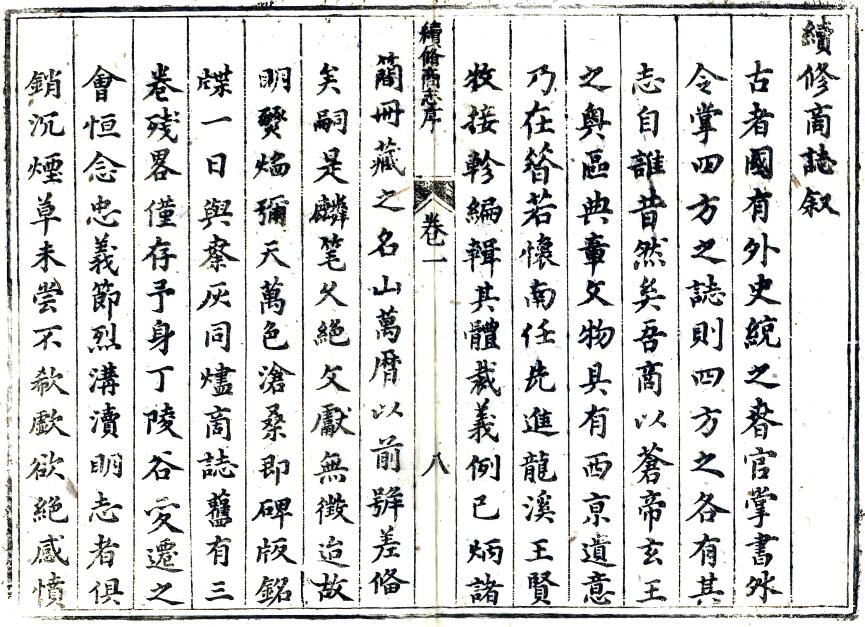 續修商誌叙
古者國有外史統之春官掌書外
令掌四方之誌則四方之各有其
志自誰昔然矣吾商以蒼帝玄王
之輿區典章文物具有西京遺意
乃在簪若懷南任先進龍溪王賢
牧接軫編輯其體裁義例已炳諸
續脩商志序
卷一
八
簡冊藏之名山萬曆以前號差俻
矣嗣是麟筆久絕文獻無徵迨故
明燹焰彌天萬色滄桑即碑版銘
牒一日與寮灰同燼商誌舊有三
卷殘畧僅存予身丁陵谷变遷之
會恒念忠義節烈溝瀆明志者俱
銷沉煙草未嘗不欷歔欲絕感憤